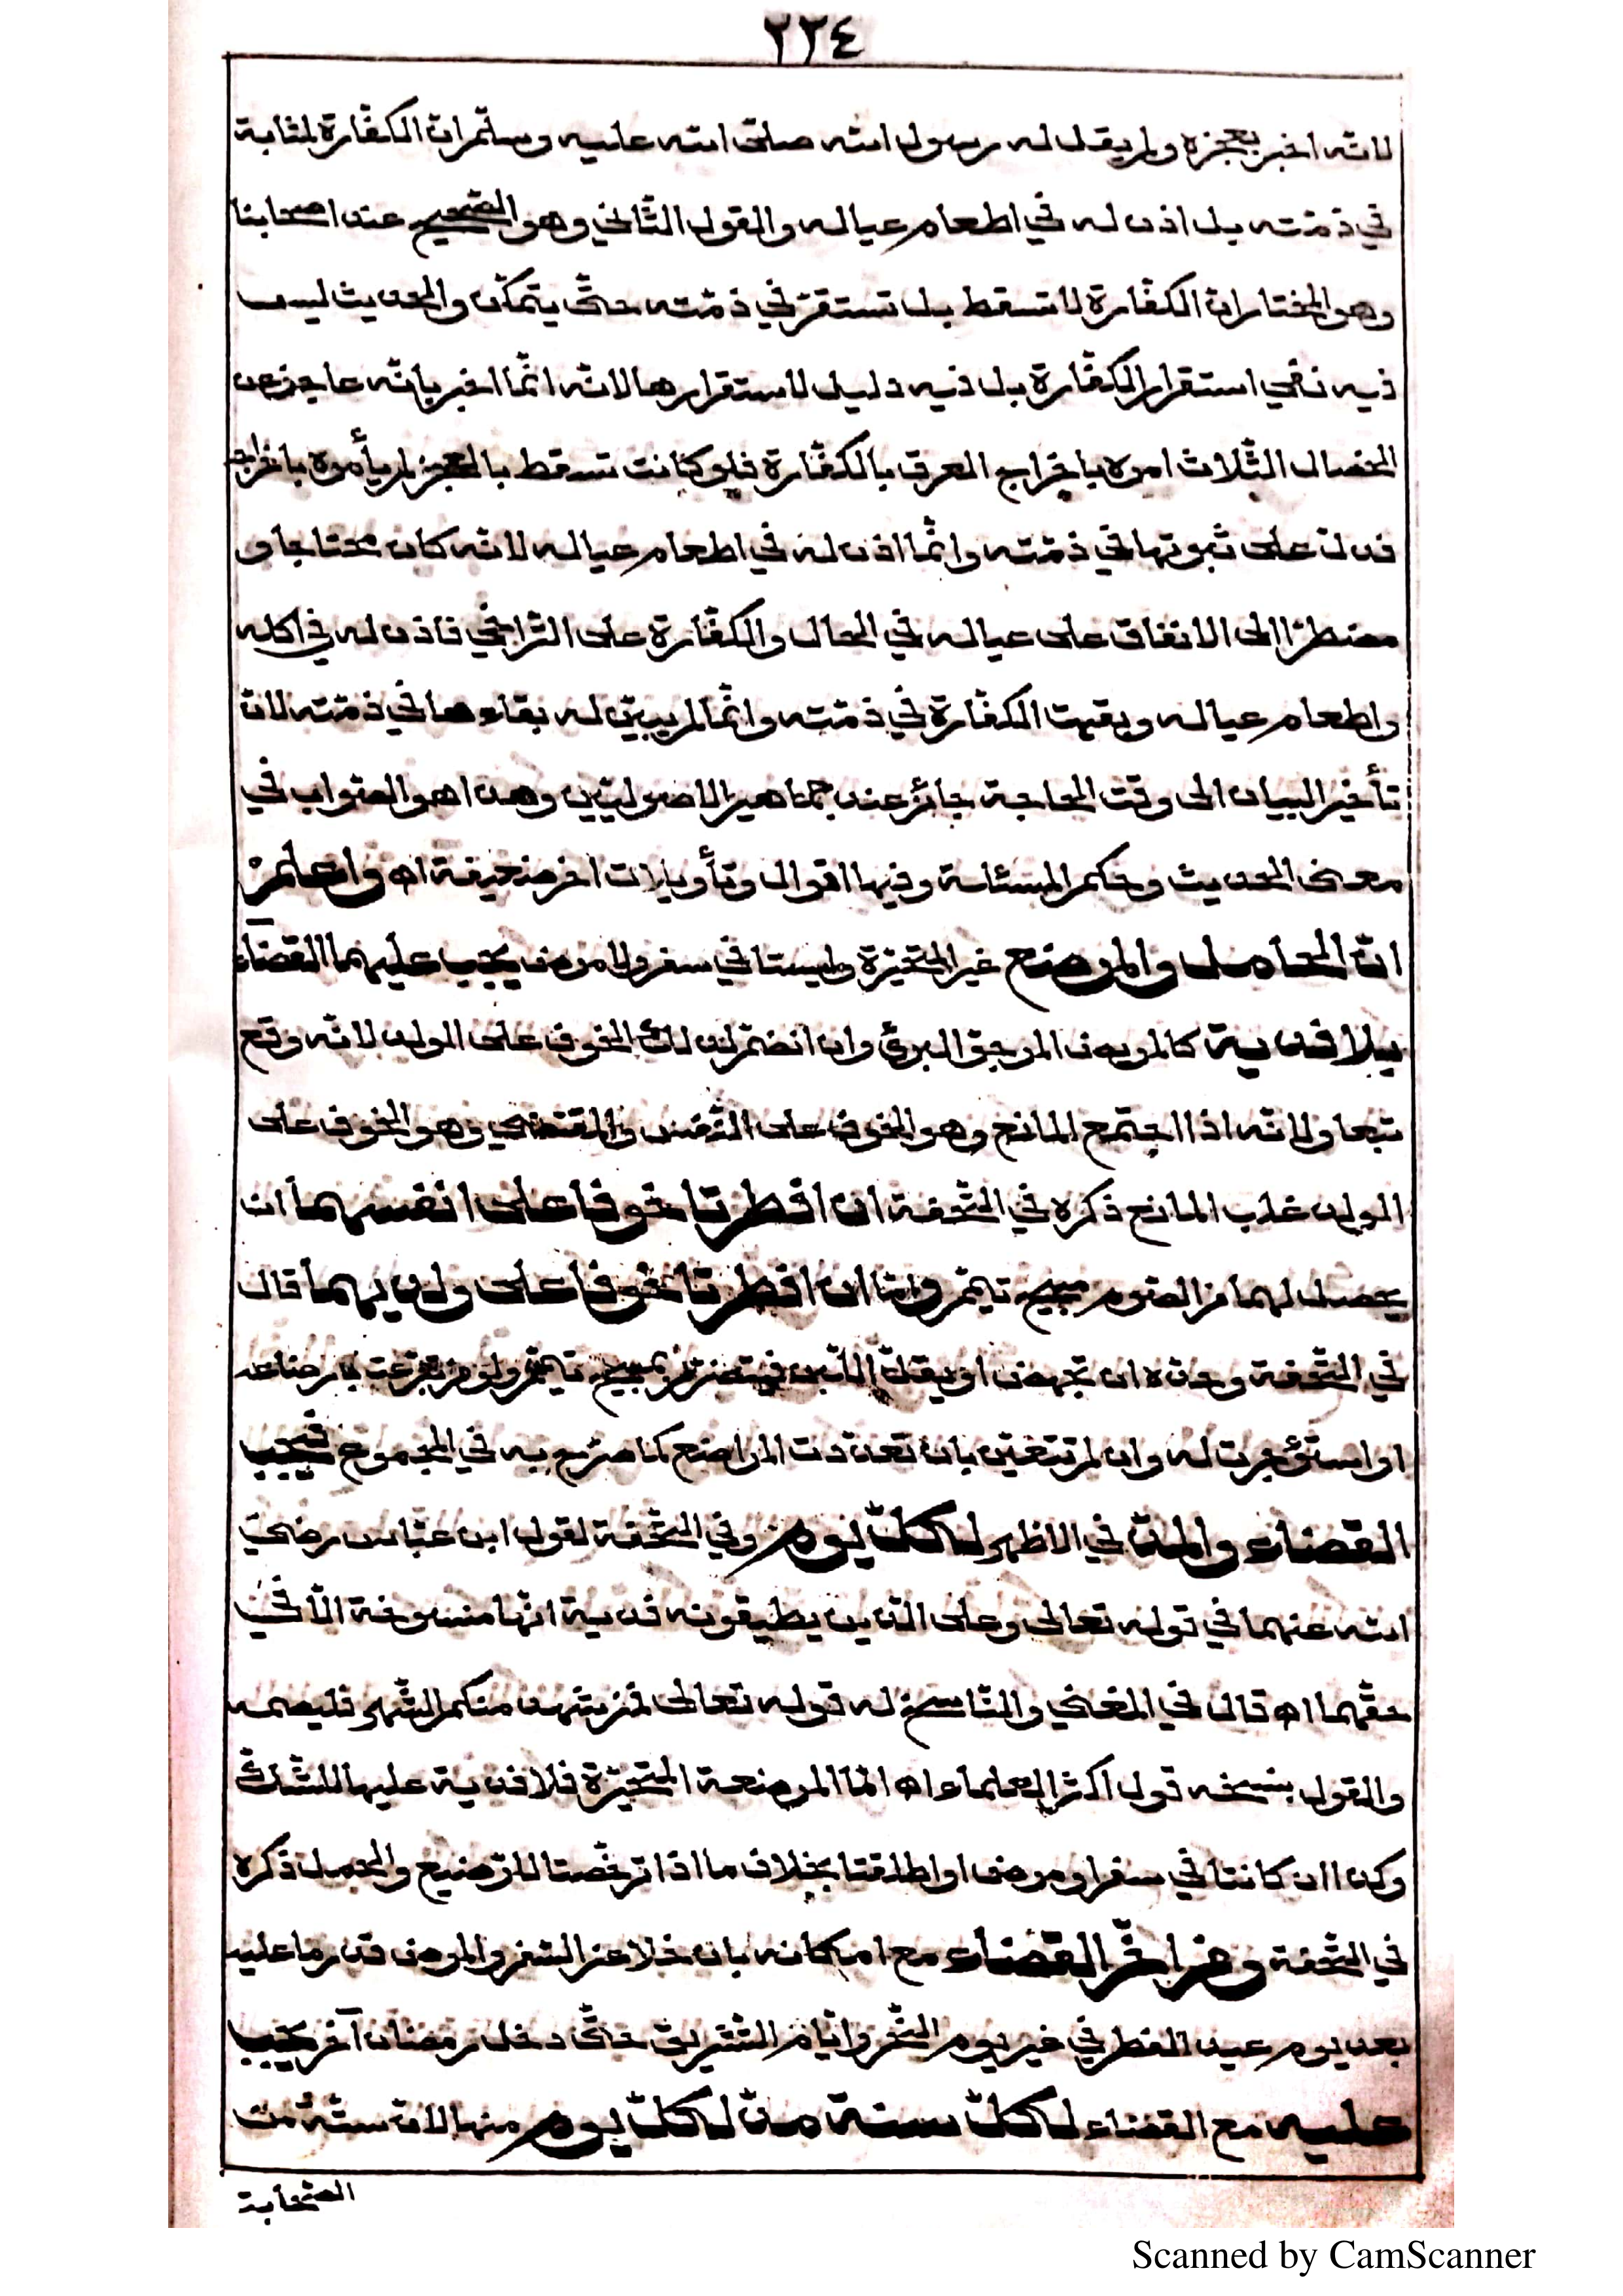 ٢٢٤
لانّه اخبر بعجزه ولم يقل له رسول الله صلى الله عليه وسلّم ان الكفّارة لثابتة
في ذمّته بل اذن له في اطعام عياله والقول الثّاني وهو الصّحيح عند اصحابنا
وهو المختار انّ الكفّارة لا تسقط بل تستقرّ في ذمّته حتّى يتمكّن والحديث ليس
فيه نفي استقرار الكفّارة بل فيه دليل لاستقرارها لانّه انّما اخبر بانّه عاجز عن
الخصال الثّلاث امره باخراج العرق بالكفّارة فلو كانت تسقط بالعجز لم يأمره باخراج
فدلّ على ثبوتها في ذمّته وانّما اذن له في اطعام عياله لانّه كان محتاجا و
مضطرّا الى الانفاق على عياله في الحال والكفّارة على التّراخي فاذن له في اكله
واطعام عياله وبقيت الكفّارة في ذمّته وانّما لم يبيّن له بقاءها في ذمّته لانّ
تأخير البيان الى وقت الحاجة جائز عند جماهير الاصوليّين وهذا هو الصّواب في
معنى الحديث وحكم المسئلة وفيها اقوال وتأويلات اخر ضعيفة اه واعلم
انّ الحامل والمرضع غير المتحيّرة وليستا في سفر ولا مرض يجب عليهما القضآء
بلا فدية كالمريض المرجوّ البرئ وان انضمّ لذلك الخوف على الولد لانّه وقع
تبعا ولانّه اذا اجتمع المانع وهو الخوف على النّفس والمقتضي وهو الخوف على
الولد غلب المانع ذكره في التّحفة ان افطرتا خوفا على انفسهما ان
يحصل لهما من الصّوم مبيح تيمّم وامّا ان افطرتا خوفا على ولديهما قال
في التّحفة وحدّه ان تجهض او يقلّ اللّبن فيتضرّر بمبيح تيمّم ولو من تبرّعت بارضاعه
او استؤجرت له وان لم تتعيّن بان تعدّدت المراضع كما صرّح به في المجموع فيجب
القضاء والمدّ في الاظهر لكلّ يوم وفي التّحفة لقول ابن عبّاس رضي
الله عنهما في قوله تعالى وعلى الذين يطيقونه فدية انّها منسوخة الّا في
حقّهما اه قال في المغني والنّاسخ له قوله تعالى فمن شهد منكم الشّهر فليصمه
والقول بنسخه قول اكثر العلماء اه امّا المرضعة المتحيّرة فلا فدية عليها للشّكّ
وكذا ان كانتا في سفر او مرض او اطلقتا بخلاف ما اذا ترخّصتا للترضيع والحمل ذكره
في التّحفة ومن اخّر القضاء مع امكانه بان خلا عن السّفر والمرض قدر ما عليه
بعد يوم عيد الفطر في غير يوم النّحر وايّام التّشريق حتّى دخل رمضان آخر يجب
عليه مع القضاء لكلّ سنة مدّ لكلّ يوم منها لانّ ستّة من
الصّحابة
Scanned by CamScanner